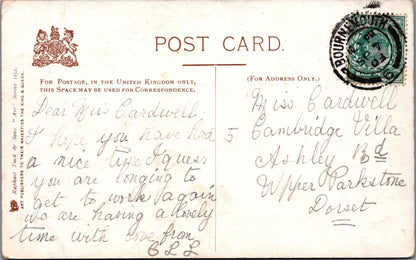 POST CARD.
FOR POSTAGE, IN THE UNITED KINGDOM ONLY,
THIS SPACE MAY BE USED FOR CORRESPONDENCE.
(FOR ADDRESS ONLY.)
Raphael Tuck & Sons' "Art" Series
ART PUBLISHERS TO THEIR MAJESTIES THE KING & QUEEN.
Dear Miss Cardwell
I hope you have had
a nice time I guess
you are longing to
get to work again
we are having a lovely
time with love from
Miss Cardwell
5 Cambridge Villa
Ashley Rd
Upper Parkstone
Dorset
BOURNEMOUTH